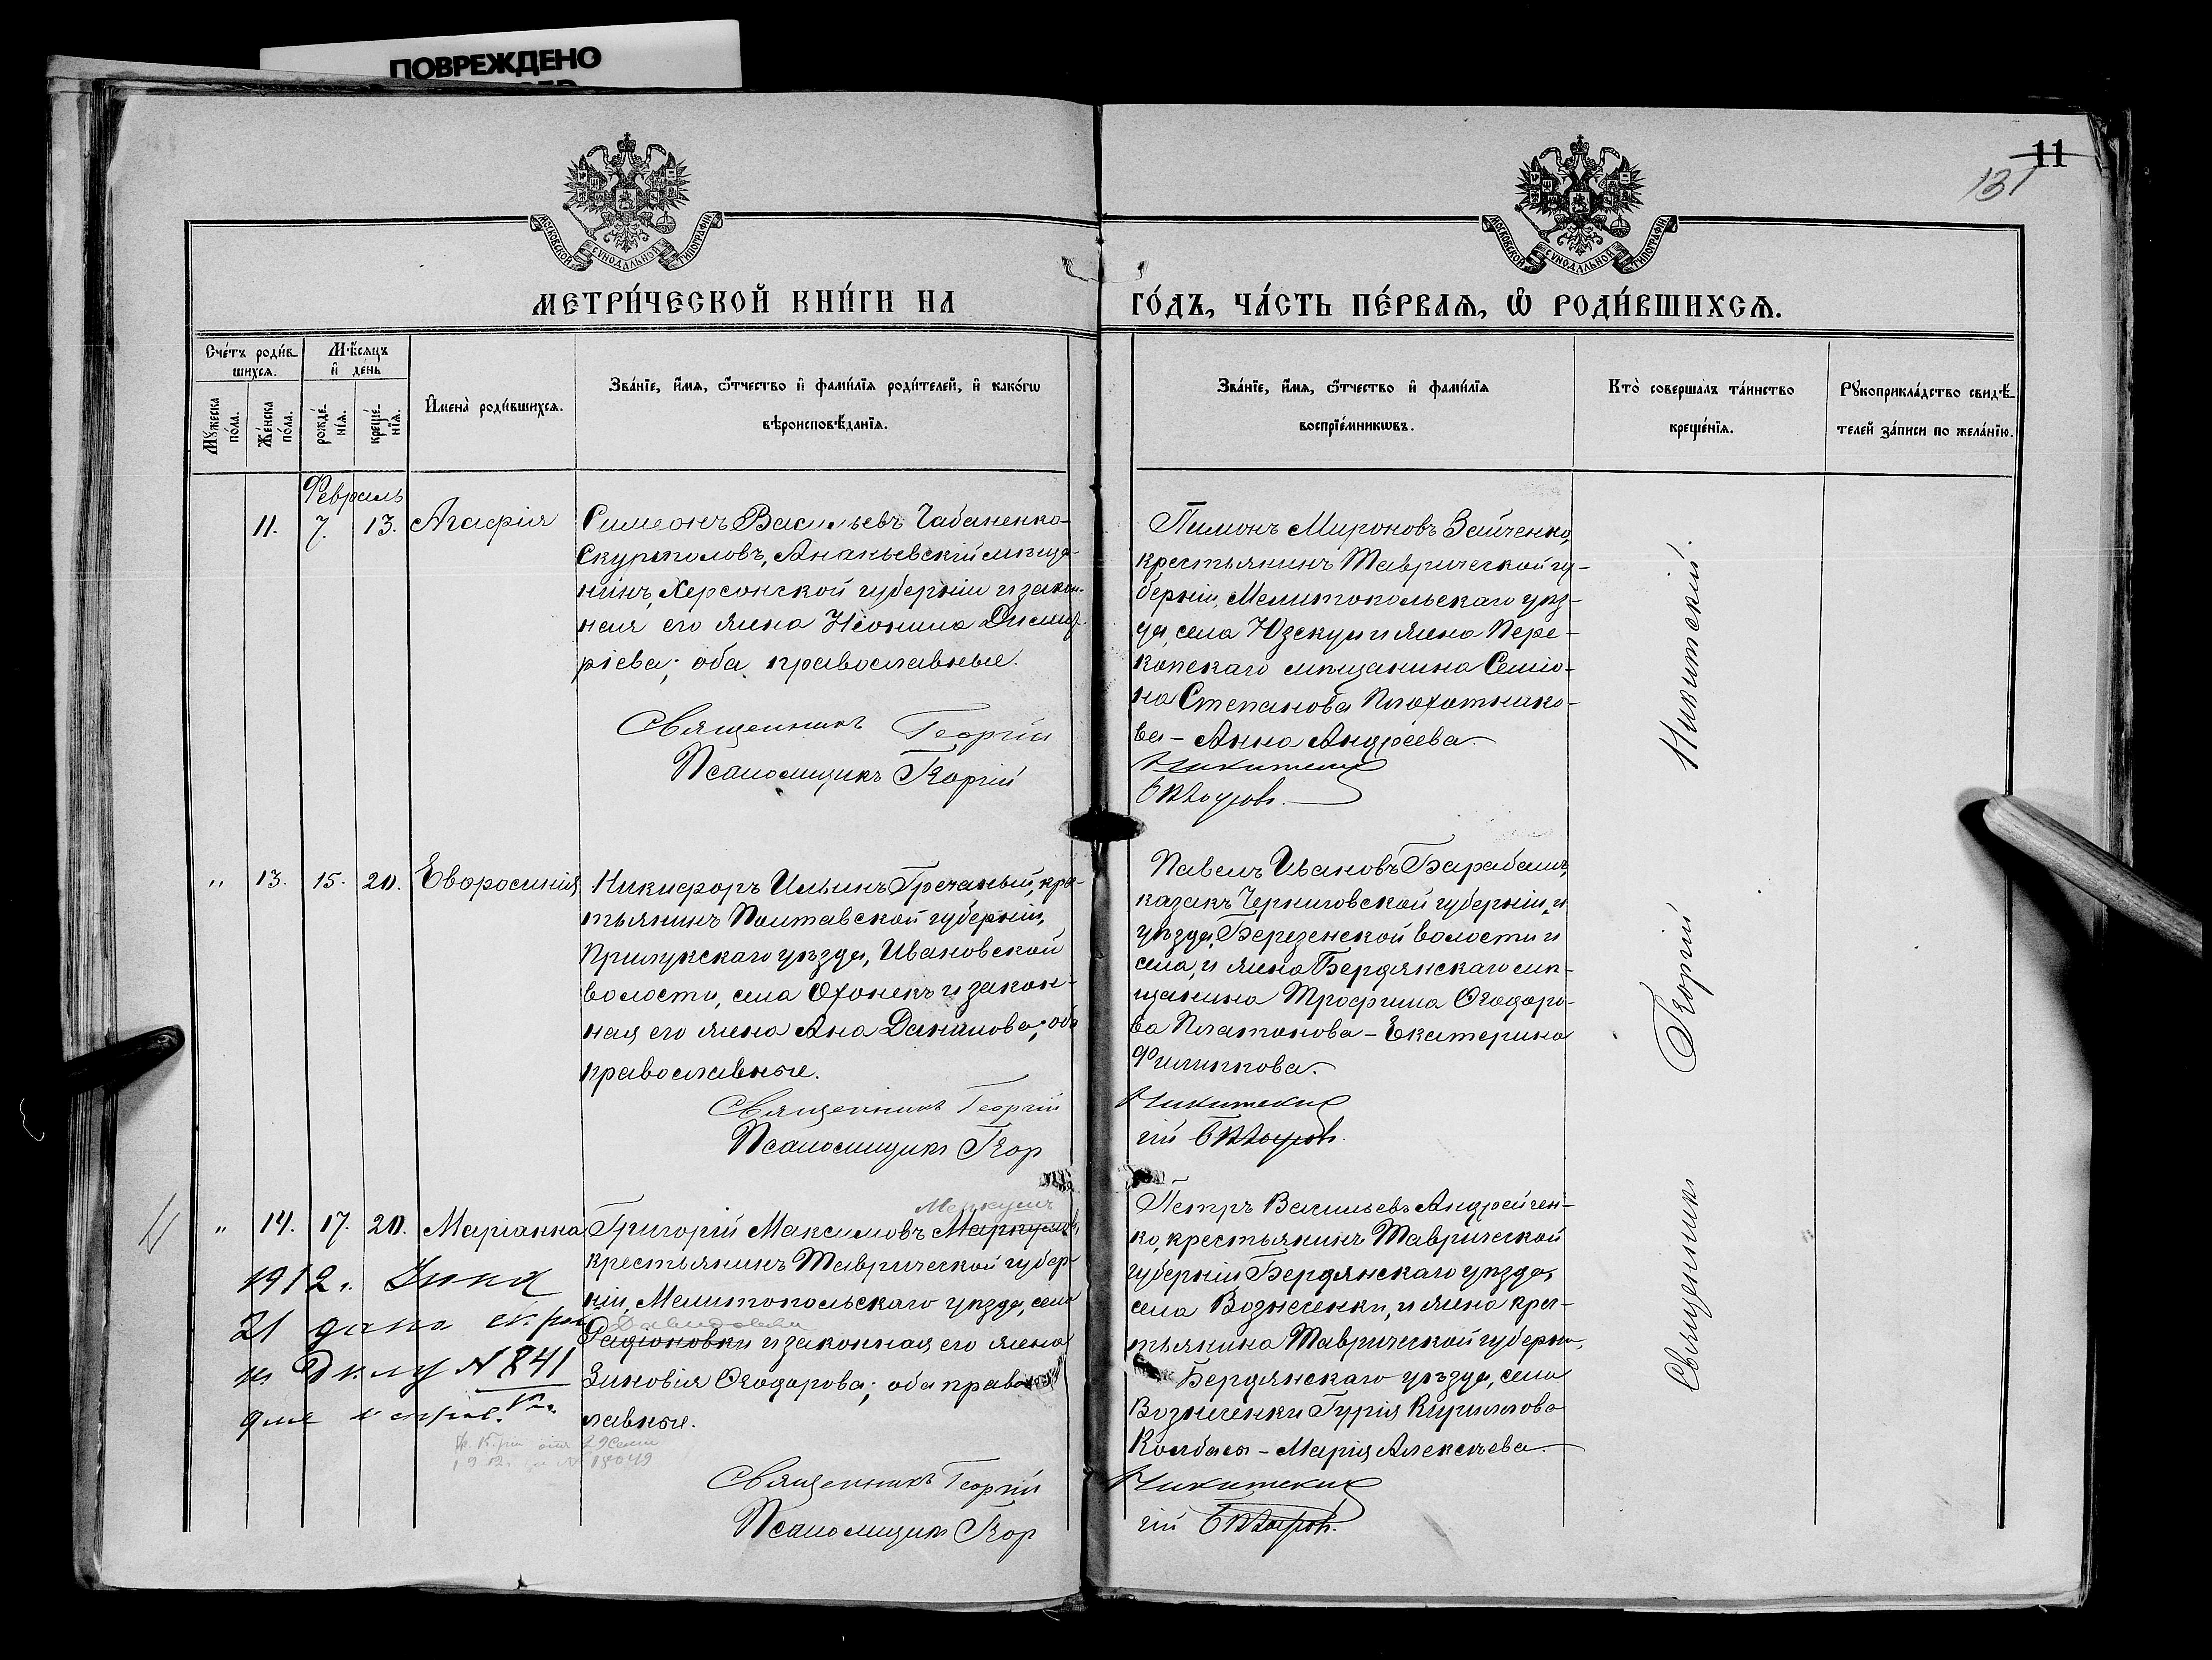 ПОВРЕЖДЕНО
11
131
МОСКОВСКОЙ СѴНОДАЛЬНОЙ ТИПОГРАФІИ
МОСКОВСКОЙ СѴНОДАЛЬНОЙ ТИПОГРАФІИ
МЕТРИ́ЧЕСКОЙ КНИ́ГИ НА
ГО́ДЪ, ЧА́СТЬ ПЕ́РВАѦ, Ѡ РОДИ́ВШИХСѦ.
Сче́тъ роди́в-
шихсѧ.
Мѣ́сѧцъ
и҆ де́нь
Мꙋ́жеска по́ла.
Же́нска по́ла.
рожде́-нїѧ.
креще́-нїѧ.
И҆мена̀ роди́вшихсѧ.
Зва́нїе, и҆́мѧ, ѻ҆́тчество и҆ фами́лїѧ роди́телей, и҆ како́гѡ
вѣроисповѣ́данїѧ.
Зва́нїе, и҆́мѧ, ѻ҆́тчество и҆ фами́лїѧ
воспрїе́мникѡвъ.
Кто̀ соверша́лъ та́инство
креще́нїѧ.
Рꙋкоприкла́дство свидѣ́-
телей за́писи по жела́нїю.
Февраль
11. 7. 13. Агафія
Симеонъ Васильевъ Чабаненко-
Скурополовъ, Ананьевскій мѣща-
нинъ, Херсонской губерніи и закон-
ная его жена Неонила Димит-
ріева; оба православные.
Священникъ Георгій
Псаломщикъ Георгій
Пимонъ Мироновъ Зайченко,
крестьянинъ Таврической гу-
берніи, Мелитопольскаго уѣз-
да, села Юзкуи и жена Пере-
копскаго мѣщанина Семіо-
на Степанова Плохотнико-
ва - Анна Андреева.
Никитскій
" 13. 15. 20. Евфросинія
Никифоръ Ильинъ Гречаный, кре-
тьянинъ Полтавской губерніи,
Прилукскаго уѣзда, Ивановской
волости, села Охонекъ и закон-
ная его жена Ана Данилова; оба
православные.
Священникъ Георгій
Псаломщикъ Геор
Павелъ Ивановъ Барабашъ,
казакъ Черниговской губерніи и
уѣзда, Березенской волости и
села, и жена Бердянскаго мѣ-
щанина Трофима Ѳеодоро-
ва Платонова - Екатерина
Филиппова.
Никитскій
гій
" 14. 17. 20. Маріанна
Григорій Максимовъ Маркуловъ,
Меркулъ
крестьянинъ Таврической губер-
ніи, Мелитопольскаго уѣзда, села
Давидовки
Радіоновки и законная его жена
Зиновія Ѳеодорова; оба право
лавные.
Священникъ Георгій
Псаломщикъ Геор
1912 г. Іюня
21 дана
къ дѣлу № 841
для
1912 г. за № 18049
Петръ Васильевъ Андрейчен-
ко, крестьянинъ Таврической
губерніи Бердянскаго уѣзда,
села Вознесенки, и жена крес-
тьянина Таврической губерні-
Бердянскаго уѣзда, села
Вознесенки Гурія Кириллова
Колбасы - Марія Алексѣева.
Никитскій
гій
Священникъ Георгій Никитскій.